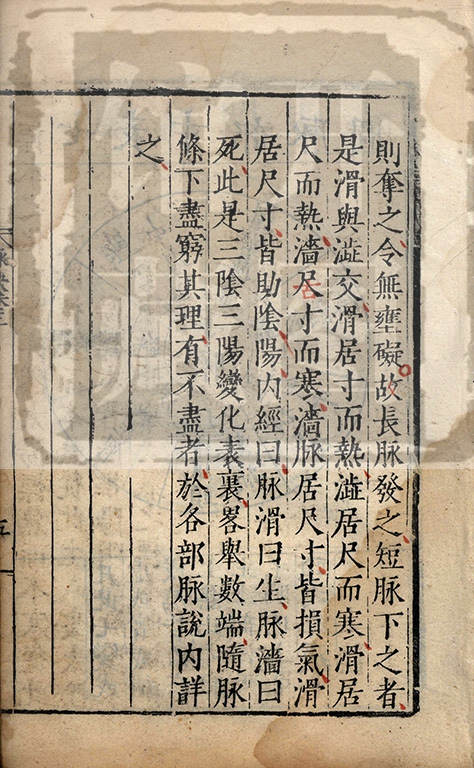 則奪之令無壅礙故長脉發之短脉下之者
是滑與澁交滑居寸而熱澁居尺而寒滑居
尺而熱濇居寸而寒濇脉居尺寸皆損氣滑
居尺寸皆助陰陽内經曰脉滑曰生脉濇曰
死此是三陰三陽變化表裏畧舉數端隨脉
條下盡窮其理有不盡者於各部脉說内詳
之
五